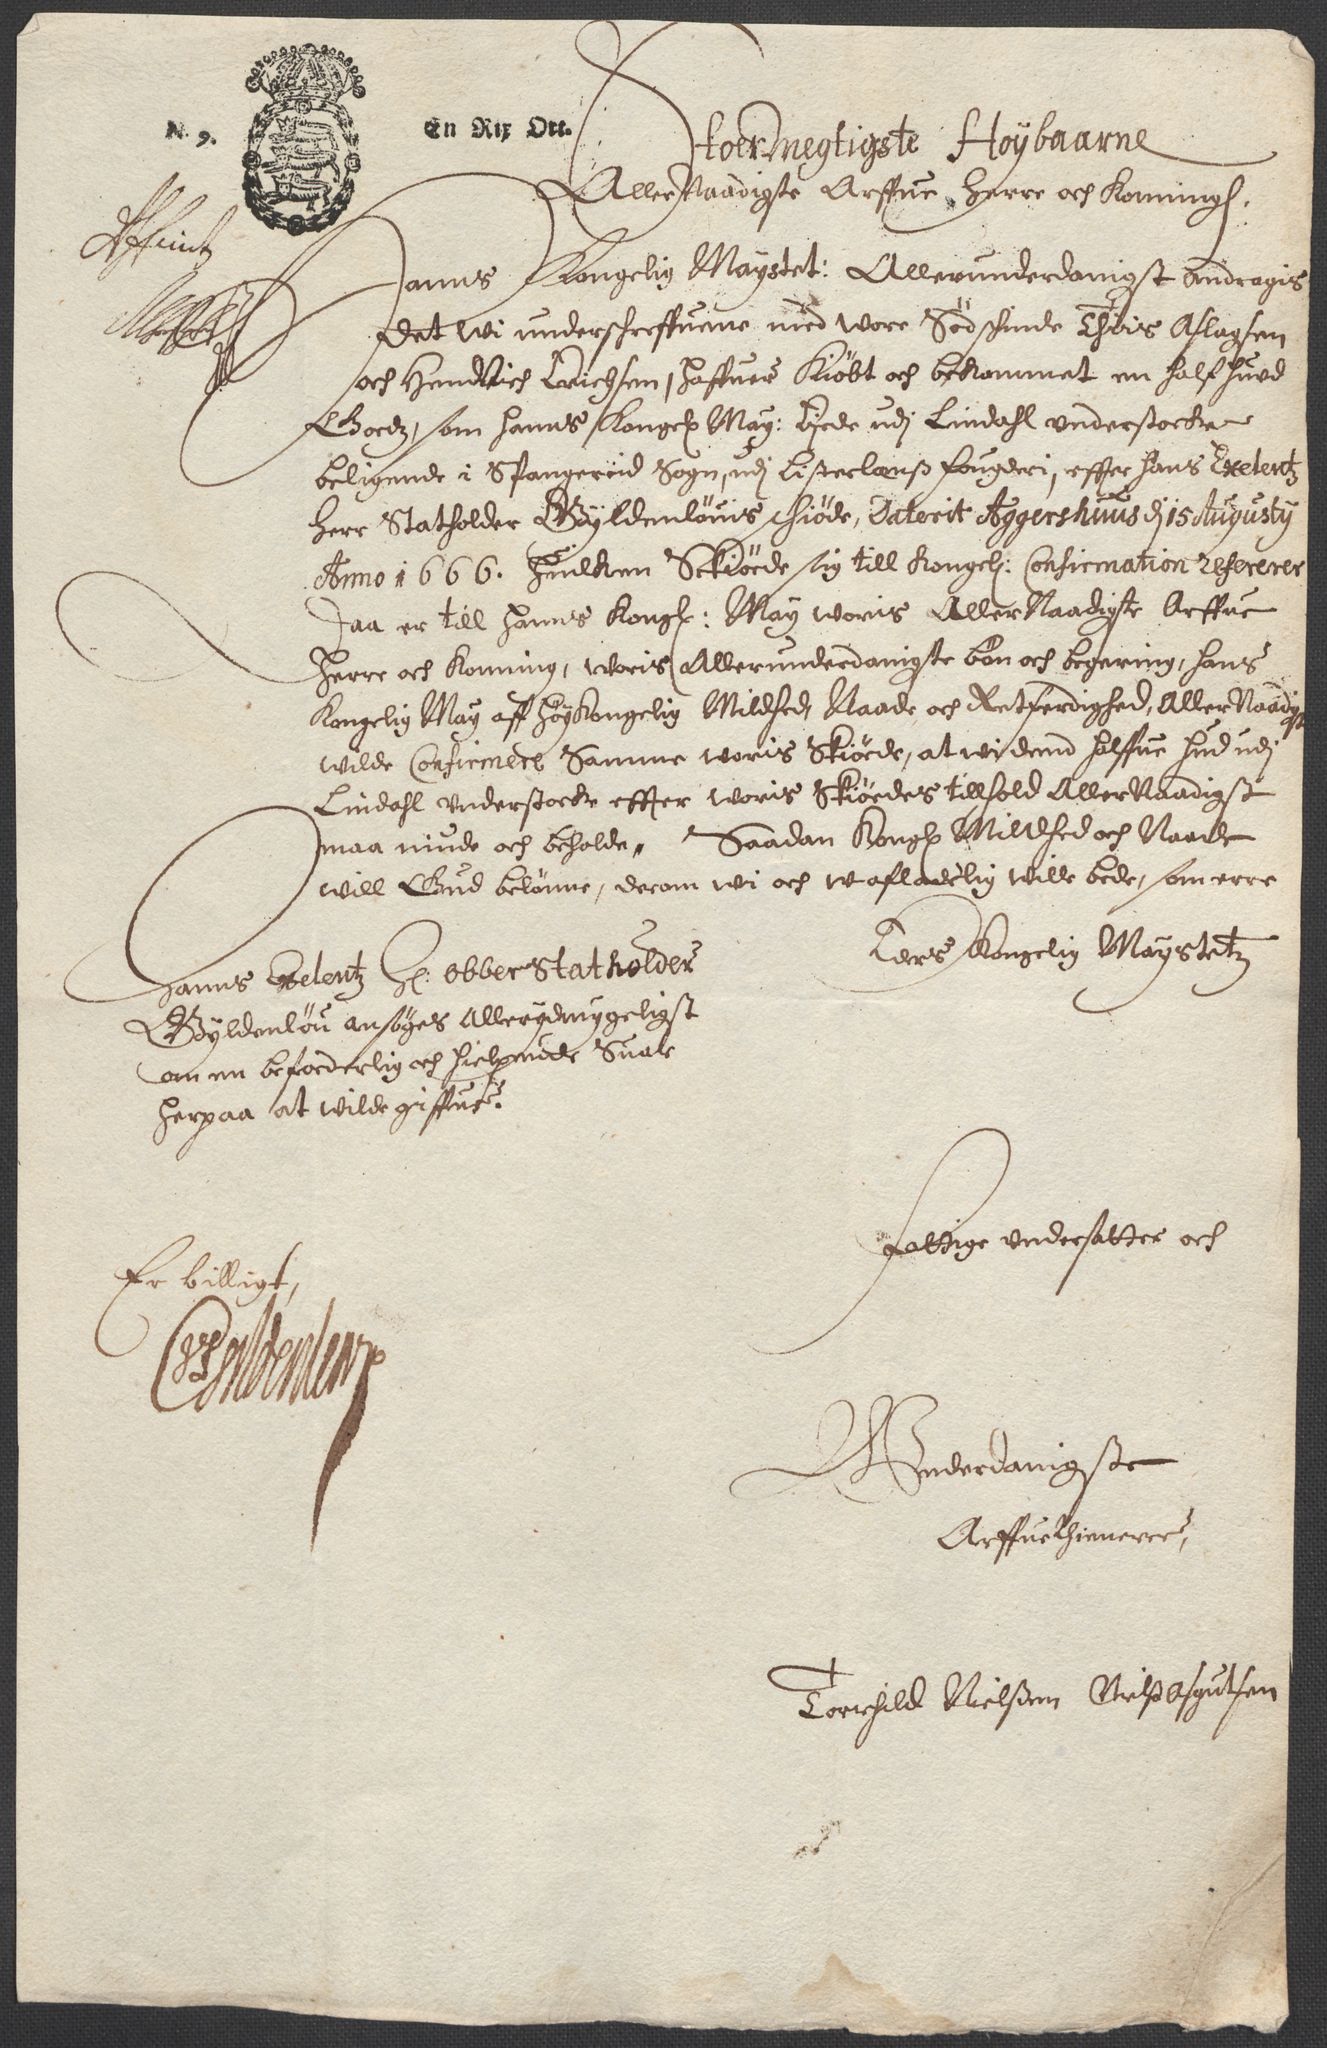 N. 9.
En Rix Ort.
Stoermegtigste Høybaarne
Aller Naadigste Arffue Herre och Konningh.
Hanns Kongelig Maystet: Allerunderdanigst andragis
det wi underschreffuene med wore Sødschinde Aslagsen
och Hendrich Erichsen, haffuer Kiöbt och bekommet en half huud
Goedz, som hanns Kongel: May: Ejede udj Lindahl understocke
beligende i Spangereid Sogn, udj Listerlenss fougderi, effter hans Exelentz
Herr Statholder Gÿldenlöuis schiöde, Daterit Aggershuus dj 15 Augustÿ
Anno 1666. huilken Sckiöede sig till Kongel: Confirmation refererer
Daa er till hanns Kongl: May woris Aller Naadigste Arffue
Herre och Konning, woris Allerunderdanigste bön och begering, hans
Kongelig May aff höy Kongelig Mildhed, Naade och Retferdighed, Aller Naadigst
wilde Confirmere Samme woris Skiöede, at wi dend halffue hud udj
Lindahl understocke effter woris Skiöedes tillhold Aller Naadigst
maa niude och beholde. Saadan Kongl Mildhed och Naade
will Gud belönne, derom wi och wafladelig wille bede, som erre
Eders Kongelig Maystetz
Hanns Exelentz H: Obber Statholder
Gÿldenlöu ansöges Allerydmygeligst
om en beforderlig och hielpende Suar
herpaa at wilde giffues.
fattige undersatter och
Er billigt,
Gyldenlew
Underdanigste
Arffuethienere,
Torchild Nielssen Nielss Asgutsen